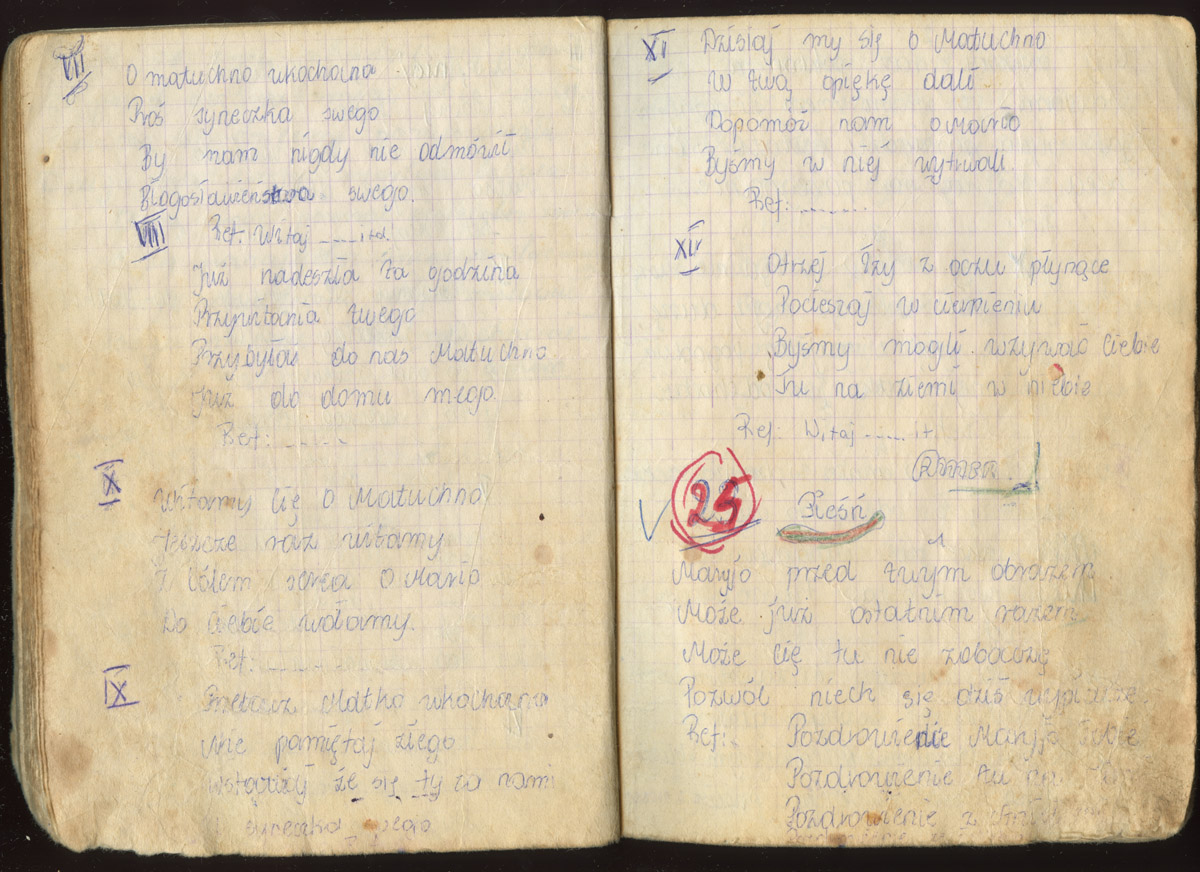 VII
O matuchno ukochana
Proś syneczka swego
By nam nigdy nie odmówił
Błogosławieństwa swego.
Ref: Witaj ..... itd.
VIII
Już nadeszła ta godzina
Przywitania twego
Przybyłaś do nas Matuchno
Już do domu mego.
Ref: ......
X
Witamy Cię O Matuchno
Jeszcze raz witamy
Z bólem serca O Mario
Do Ciebie wołamy.
Ref: ......
IX
Przebacz Matko ukochana
Nie pamiętaj złego
Wstawiaj że się ty za nami
syneczka swego
XI
Dzisiaj my się o Matuchno
W twą opiękę dali
Dopomóż nam o Mario
Byśmy w niej wytrwali.
Ref: .......
Otrzej łzy z oczu płynące
Pocieszaj w cierpieniu
Byśmy mogli wzywać Ciebie
Tu na ziemi w niebie
Ref: Witaj ..... it.
25 Pieśń
Maryjo przed twym obrazem
Może już ostatnim razem
Może cię tu nie zobaczę
Pozwól niech się dziś wypłaczę
Ref: Pozdrowienie Maryjo Tobie
Pozdrowienie tu na
Pozdrowienie z